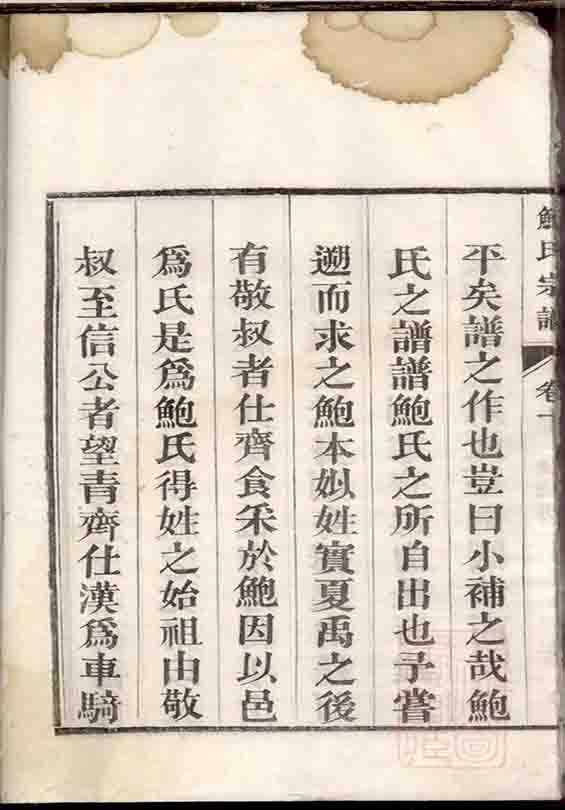 鮑氏宗譜 卷一
平矣譜之作也豈曰小補之哉鮑
氏之譜譜鮑氏之所自出也予嘗
遡而求之鮑本姒姓實夏禹之後
有敬叔者仕齊食采於鮑因以邑
爲氏是爲鮑氏得姓之始祖由敬
叔至信公者望青齊仕漢爲車騎